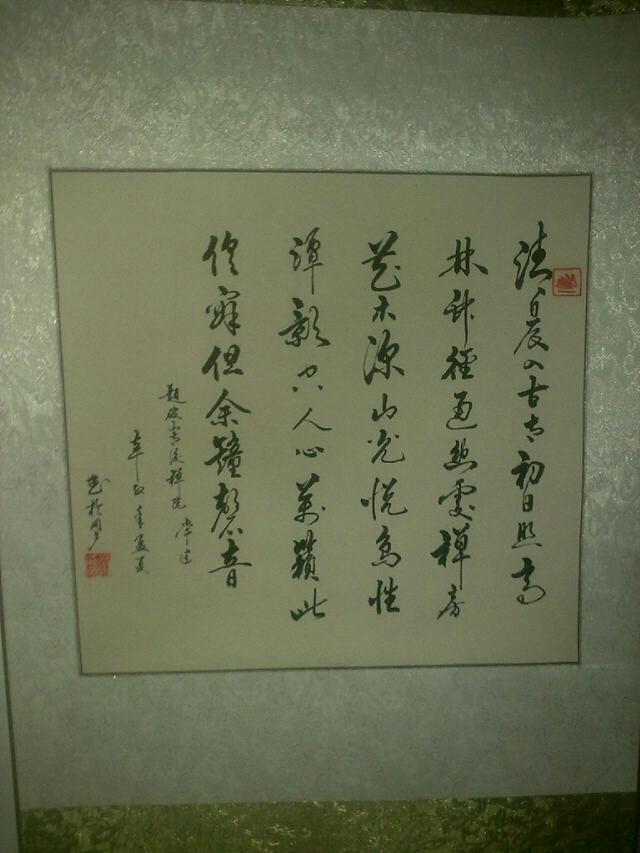 清晨入古寺初日照高
林竹徑通幽處禪房
花木深山光悦鳥性
潭影空人心萬籟此
俱寂但余鐘磬音
題破山寺後禪院 常建
辛卯年孟夏